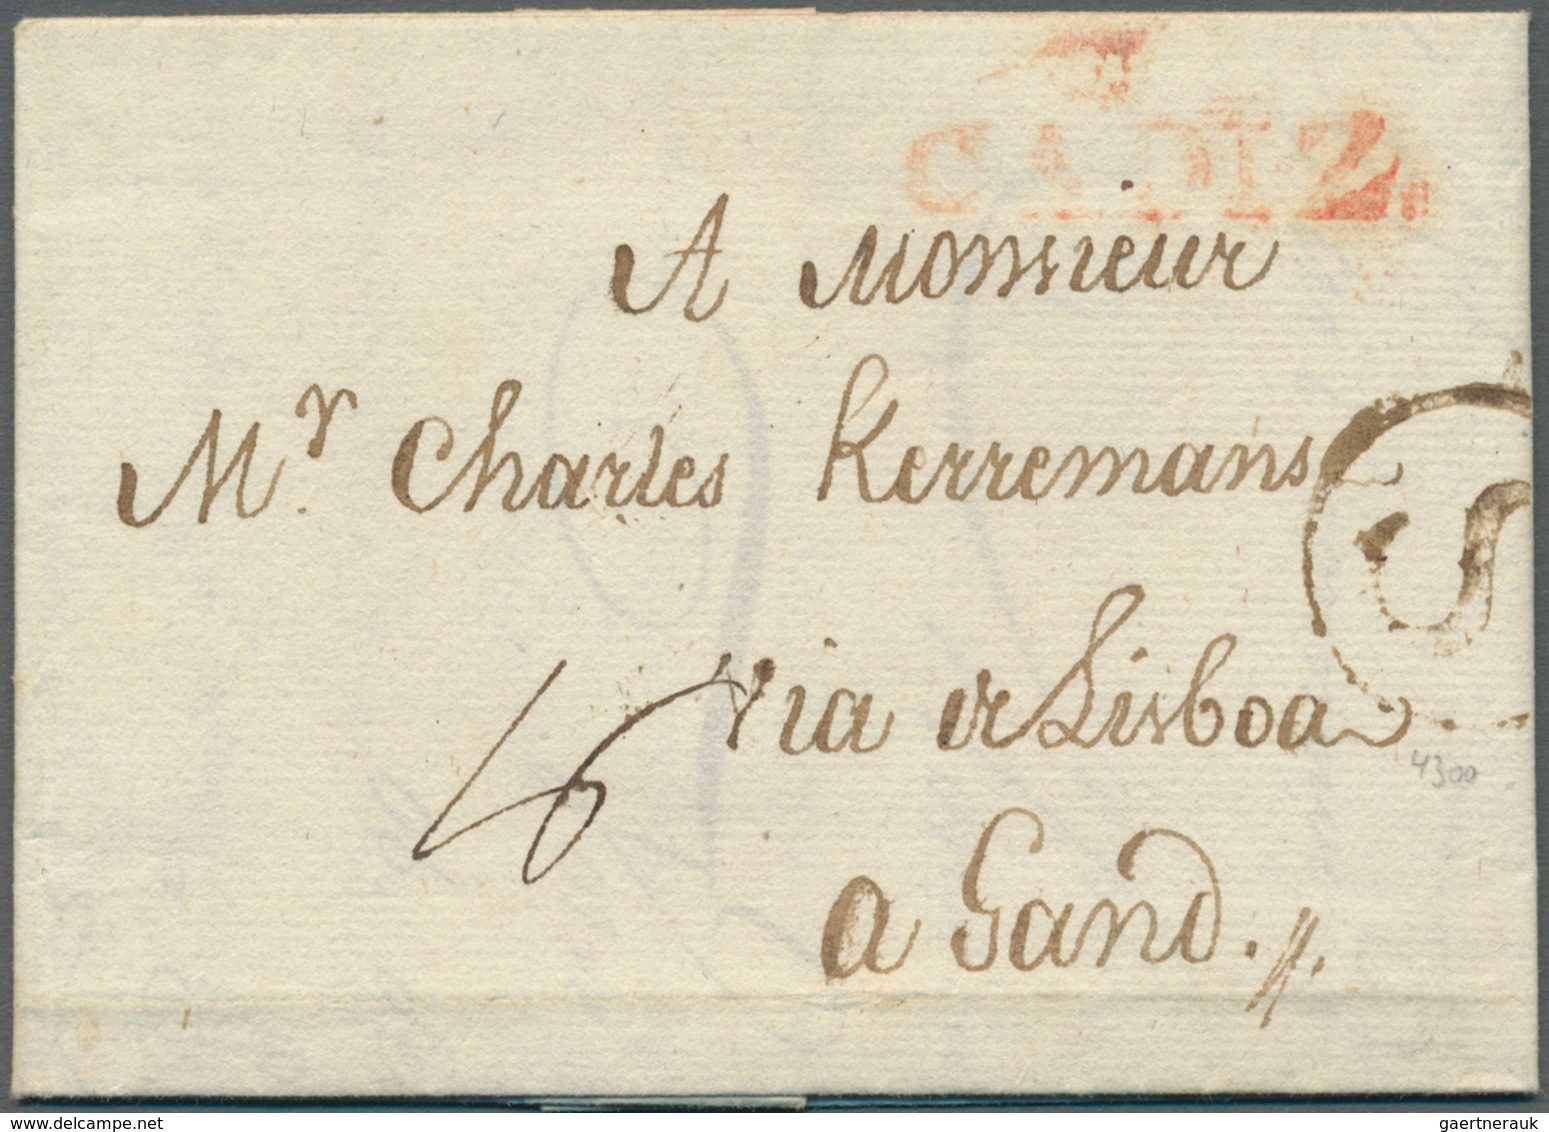 CADIZ.
A Monsieur
Mr. Charles Kerremans
S
via de Lisboa
16
4300
a Gand.
www.delcampe.net
gaertnerauk